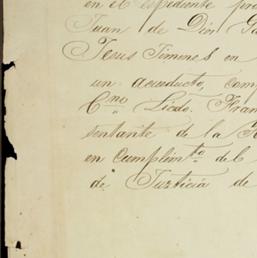 en el expediente pro
Juan de Dios Ga
Jesus Timones en
un acueducto, com
Cno Licdo. Fran
sentante de la
en Cumplimto del
de Justicia de